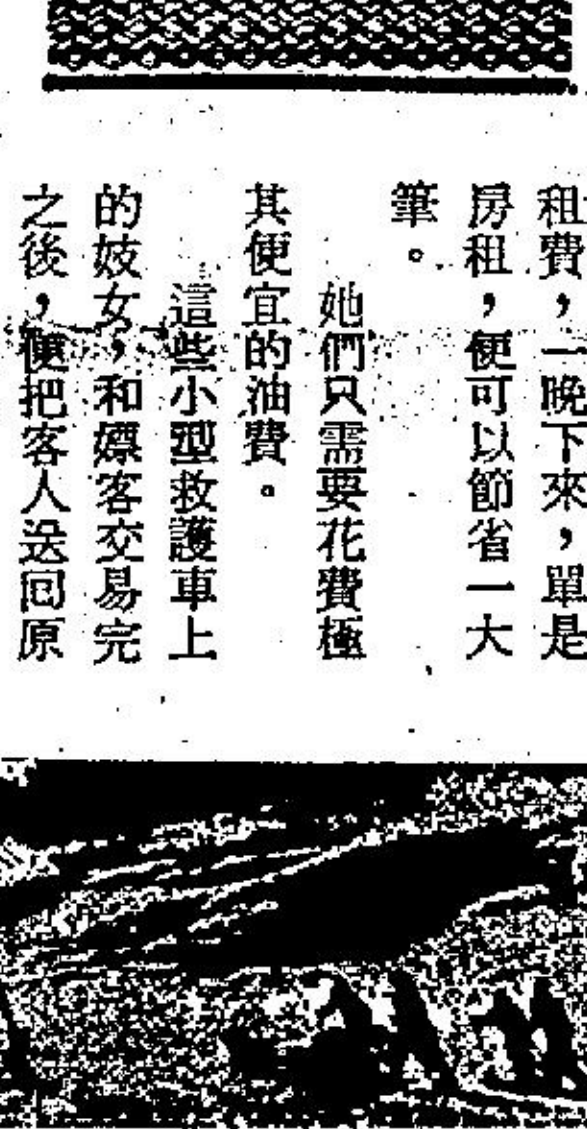 租費，一晚下來，單是
房租，便可以節省一大
筆。
她們只需要花費極
其便宜的油費。
這些小型救護車上
的妓女，和嫖客交易完
之後，便把客人送回原